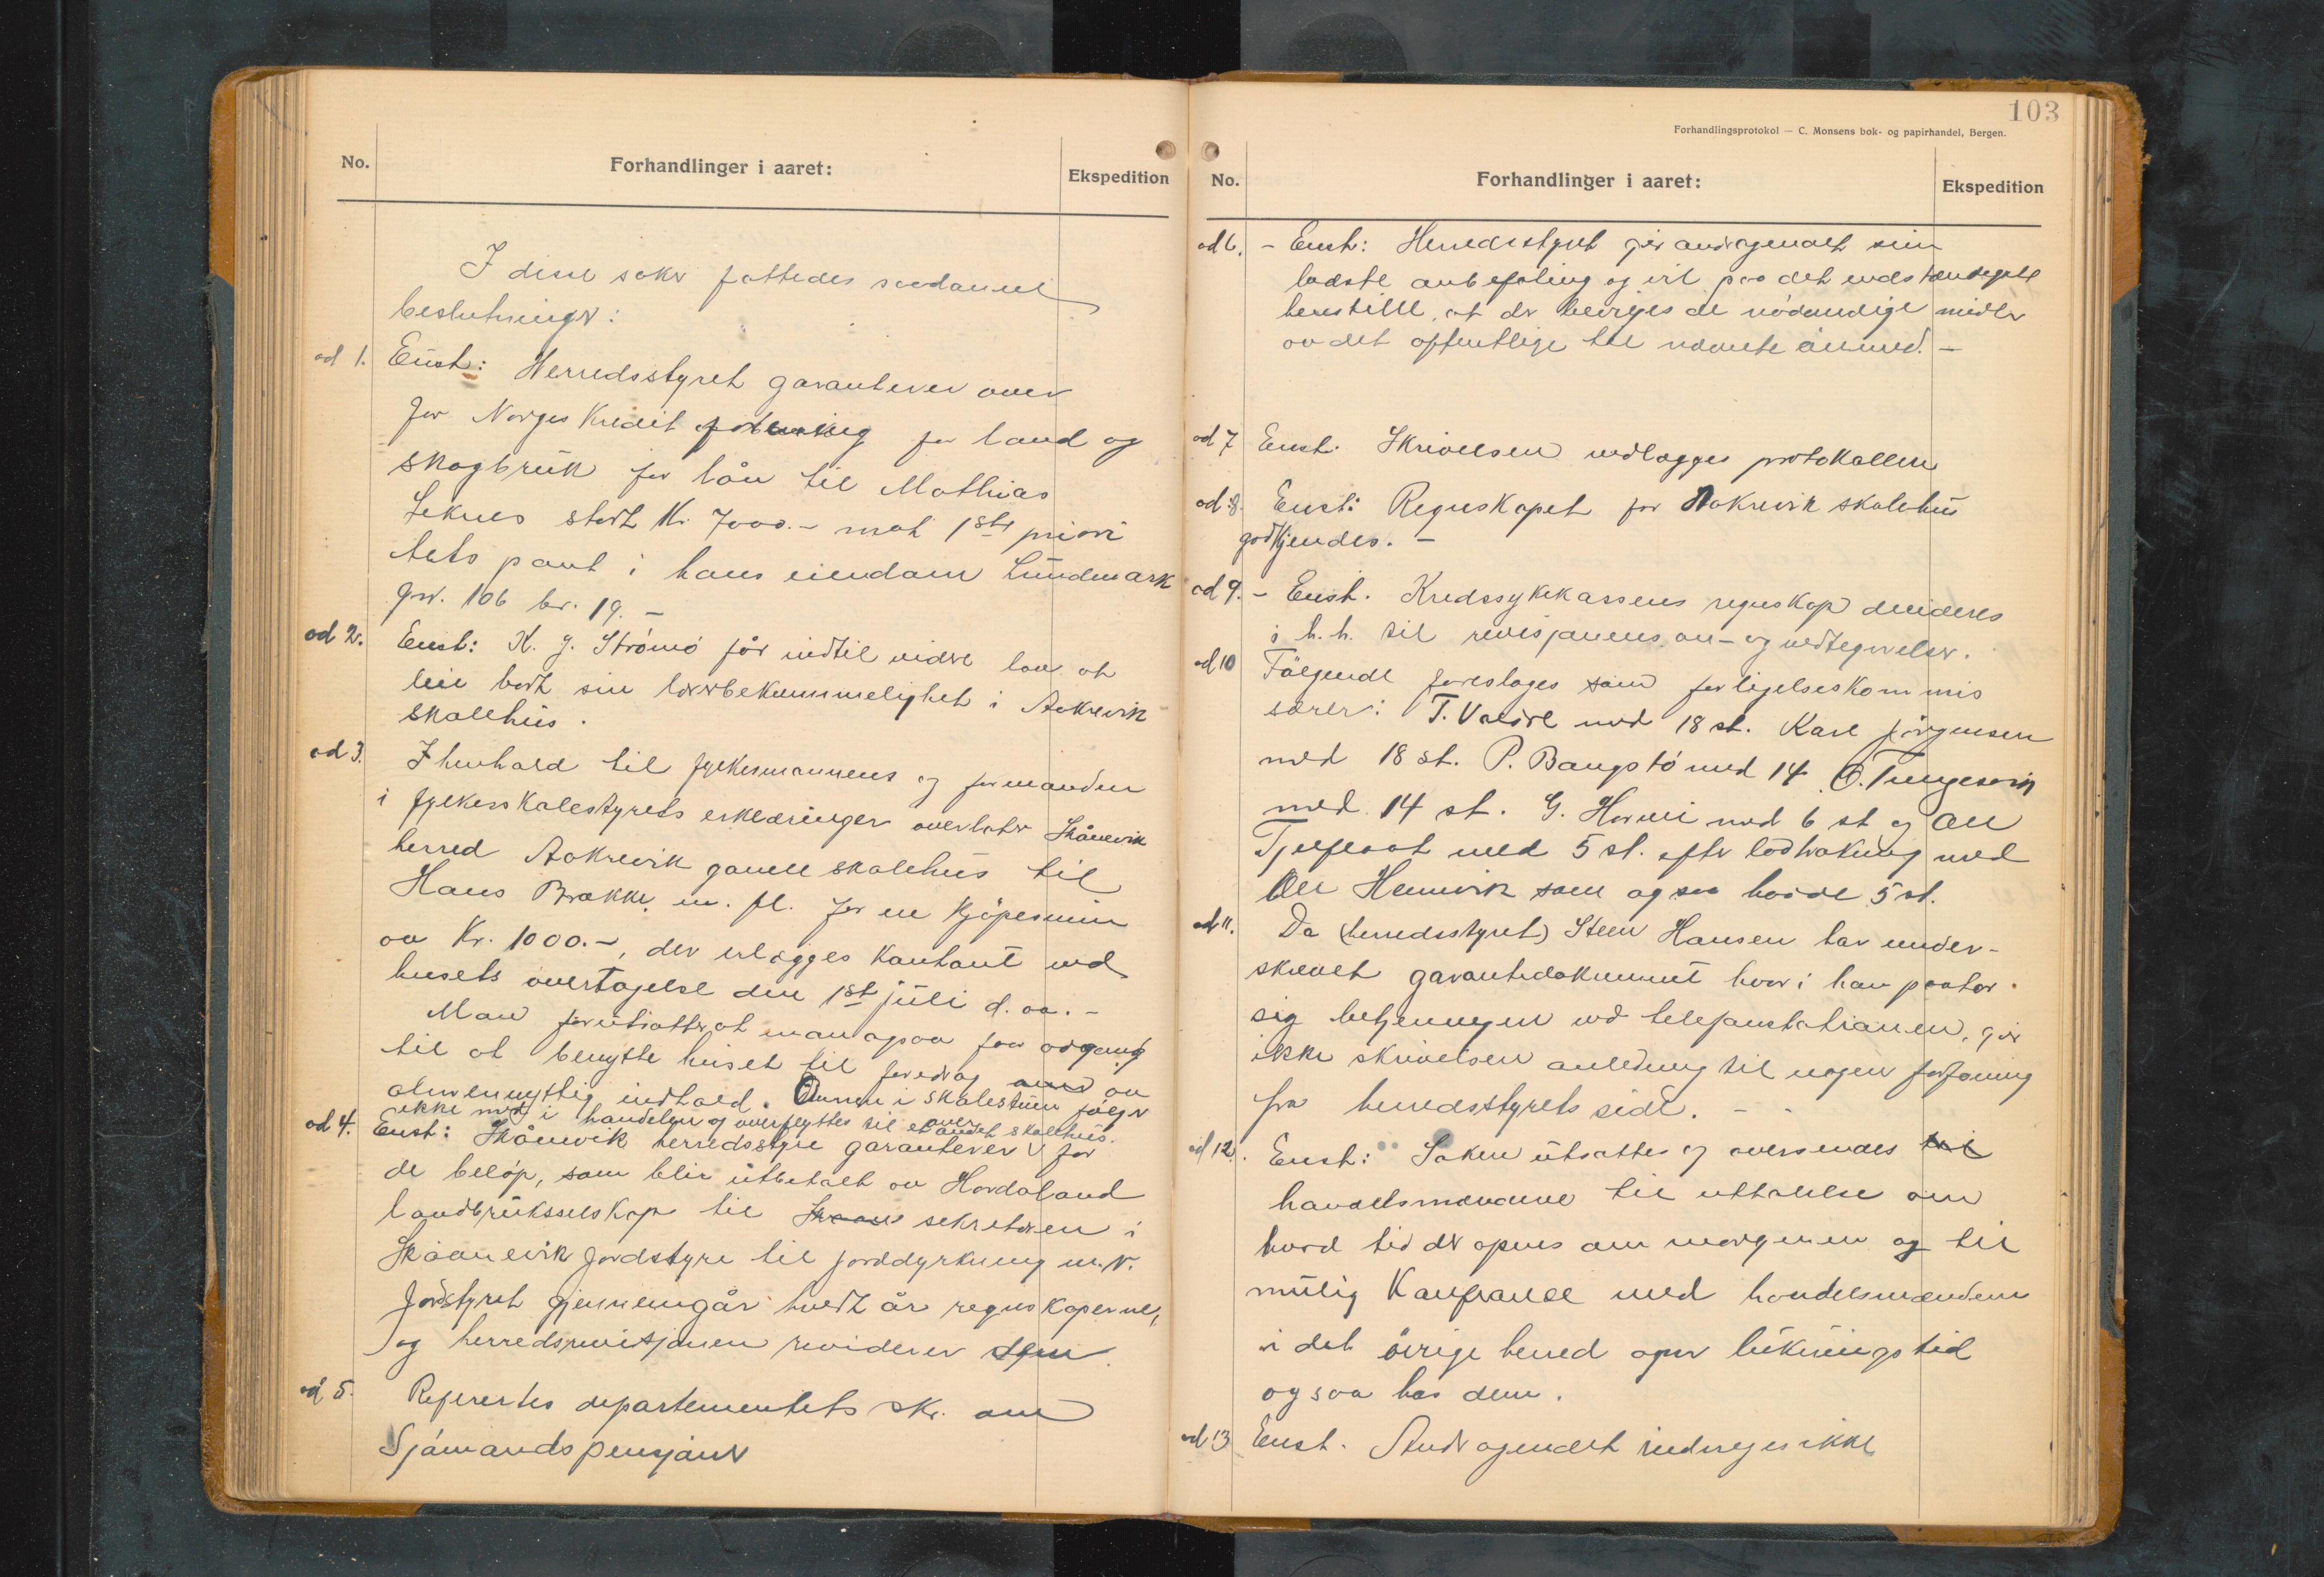 No.
Forhandlinger i aaret:
Ekspedition
I disse saker fattedes saadanne
beslutninger:
ad 1. Enst: Herredsstyret garanterer over
for Norges Kredit forening for land og
skogbruk for lån til Mathias
Leknes stort Kr. 7000.- mot 1ste priori
tets pant i hans eiendom Lundemark
gnr. 106 br. 19. -
ad 2. Enst: K. J. Strømø får indtil videre lov at
leie bort sin lærerbekvemmelighet i Aakrevik
skolehus.
ad 3. I henhold til fylkesmannens og formanden
i fylkesskolestyrets erklæringer overlater Skånevik
herred Aakrevik gamle skolehus til
Hans Brekke m. fl. for en kjøpesum
av Kr. 1000.-, der erlægges kontant ved
husets overtagelse den 1st juli d. aa. -
Man forutsætter at man ogsaa faar adgang
til at benytte huset til foredrag av
almennyttig indhold. Ovnen i skolestuen følger
ikke med i handelen og overflyttes til et andet skolehus.
ad 4. Enst: Skånevik herredsstyre garanterer over for
de beløp, som blir utbetalt av Hordaland
landbruksselskap til sekretæren i
Skaanevik jordstyre til jorddyrkning m.v.
Jordstyret gjennemgår hvert år regnskaperne,
og herredsrevisjonen reviderer dem.
ad 5. Referertes departementets skr. om
Sjømandspensjoner
103
Forhandlingsprotokol — C. Monsens bok- og papirhandel, Bergen.
No.
Forhandlinger i aaret:
Ekspedition
ad 6. - Enst: Herredsstyret gir andragendet sin
bedste anbefaling og vil paa det indstændigste
henstille, at der beviges de nødvendige midler
av det offentlige til nævnte øiemed. -
ad 7 Enst. Skrivelsen vedlægges protokollen
ad 8. Enst: Regnskapet for Aakrevik skolehus
godkjendes. -
ad 9. - Enst. Kredssykekassens regnskap desideres
i h. h. til revisjonens an- og vedtegnelser.
ad 10 Følgende foreslages som forligelseskommis
særer: T. Valdre med 18 st. Karl Jørgensen
med 18 st. P. Baugstø med 14 O. Tungesvik
med 14 st. G. med 6 st og Ole
Tjelflaat med 5 st. efter lodtrækning med
Ole Hemmvik som ogsaa havde 5 st.
ad 11. Da (herredsstyret) Steen Hansen har under-
skrevet garantidokument hvori han paatar
sig betjeningen ved telefonstationen, gir
ikke skrivelsen anledning til nogen forføining
fra herredsstyrets side. -
ad 12. Enst: Saken utsattes og oversendes til
handelsmændene til uttalelse om
hvad tid der åpnes om morgenen og til
mulig konferanse med handelsmændene
i det øvrige herred over lukningstid
ogsaa hos dem.
ad 13 Enst. Andragendet indvilges ikke